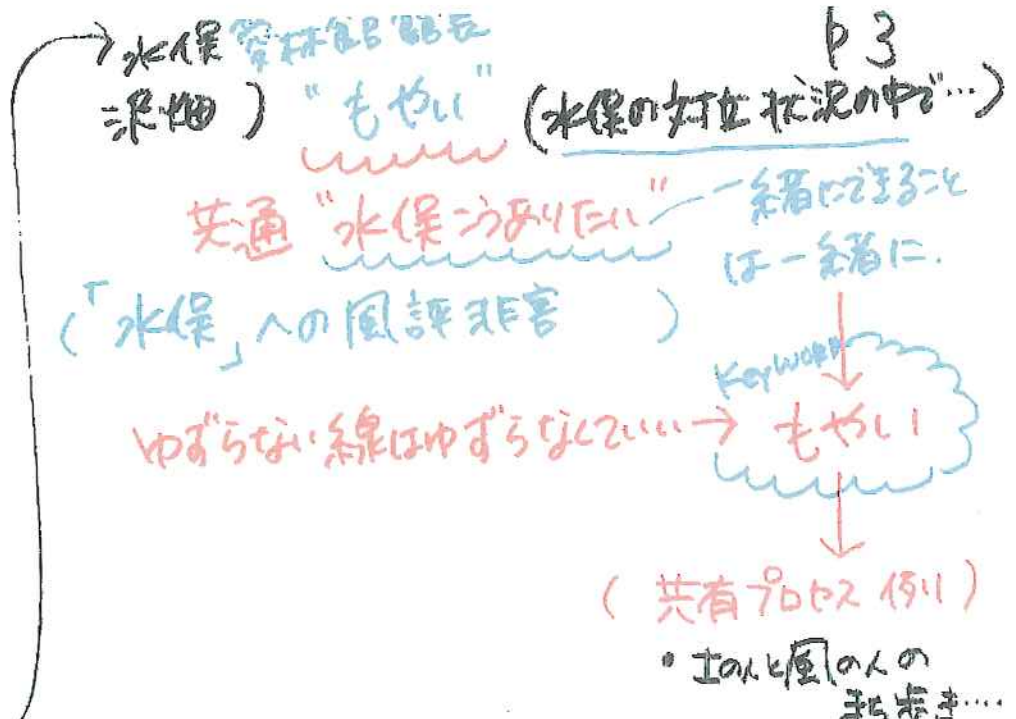 →水俣 愛林館館長
沢畑）“もやい”
p3
（水俣の対立状況の中で…）
共通“水俣こうありたい”
一緒にできること
は一緒に.
（「水俣」への風評被害　）
Keyword
ゆずらない線はゆずらなくていい→ もやい
（共有プロセス 例）
・土の人と風の人の
まち歩き….